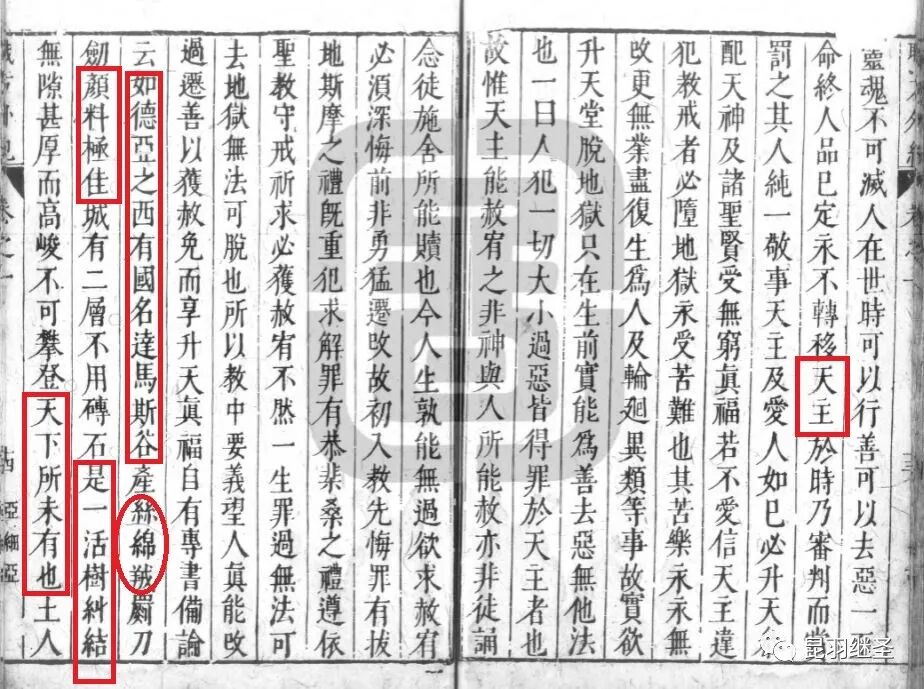 靈魂不可滅人在世時可以行善可以去惡一
命終人品已定永不轉移天主於時乃審判而
罰之其人純一敬事天主及愛人如已必升天
配天神及諸聖賢受無窮眞福若不愛信天主違
犯教戒者必墮地獄永受苦難也其苦樂永無
改更無業盡復生爲人及輪廻異類等事故實欲
升天堂脫地獄只在生前實能爲善去惡無他法
也一曰人犯一切大小過惡皆得罪於天主者也
故惟天主能赦宥之非神與人所能赦亦非徒誦
念徒施舍所能贖也今人生孰能無過欲求赦宥
必須深悔前非勇猛遷改故初入教先悔罪有拔
地斯摩之禮旣重犯求解罪有恭桑之禮遵依
聖教守戒祈求必獲赦宥不然一生罪過無法可
去地獄無法可脫也所以教中要義望人眞能改
過遷善以獲赦免而享升天眞福自有專書備論
云如德亞之西有國名達馬斯谷產絲綿羢罽刀
劒顏料極佳城有二層不用磚石是一活樹糾結
無隙甚厚而高峻不可攀登天下所未有也土人
昆羽继圣